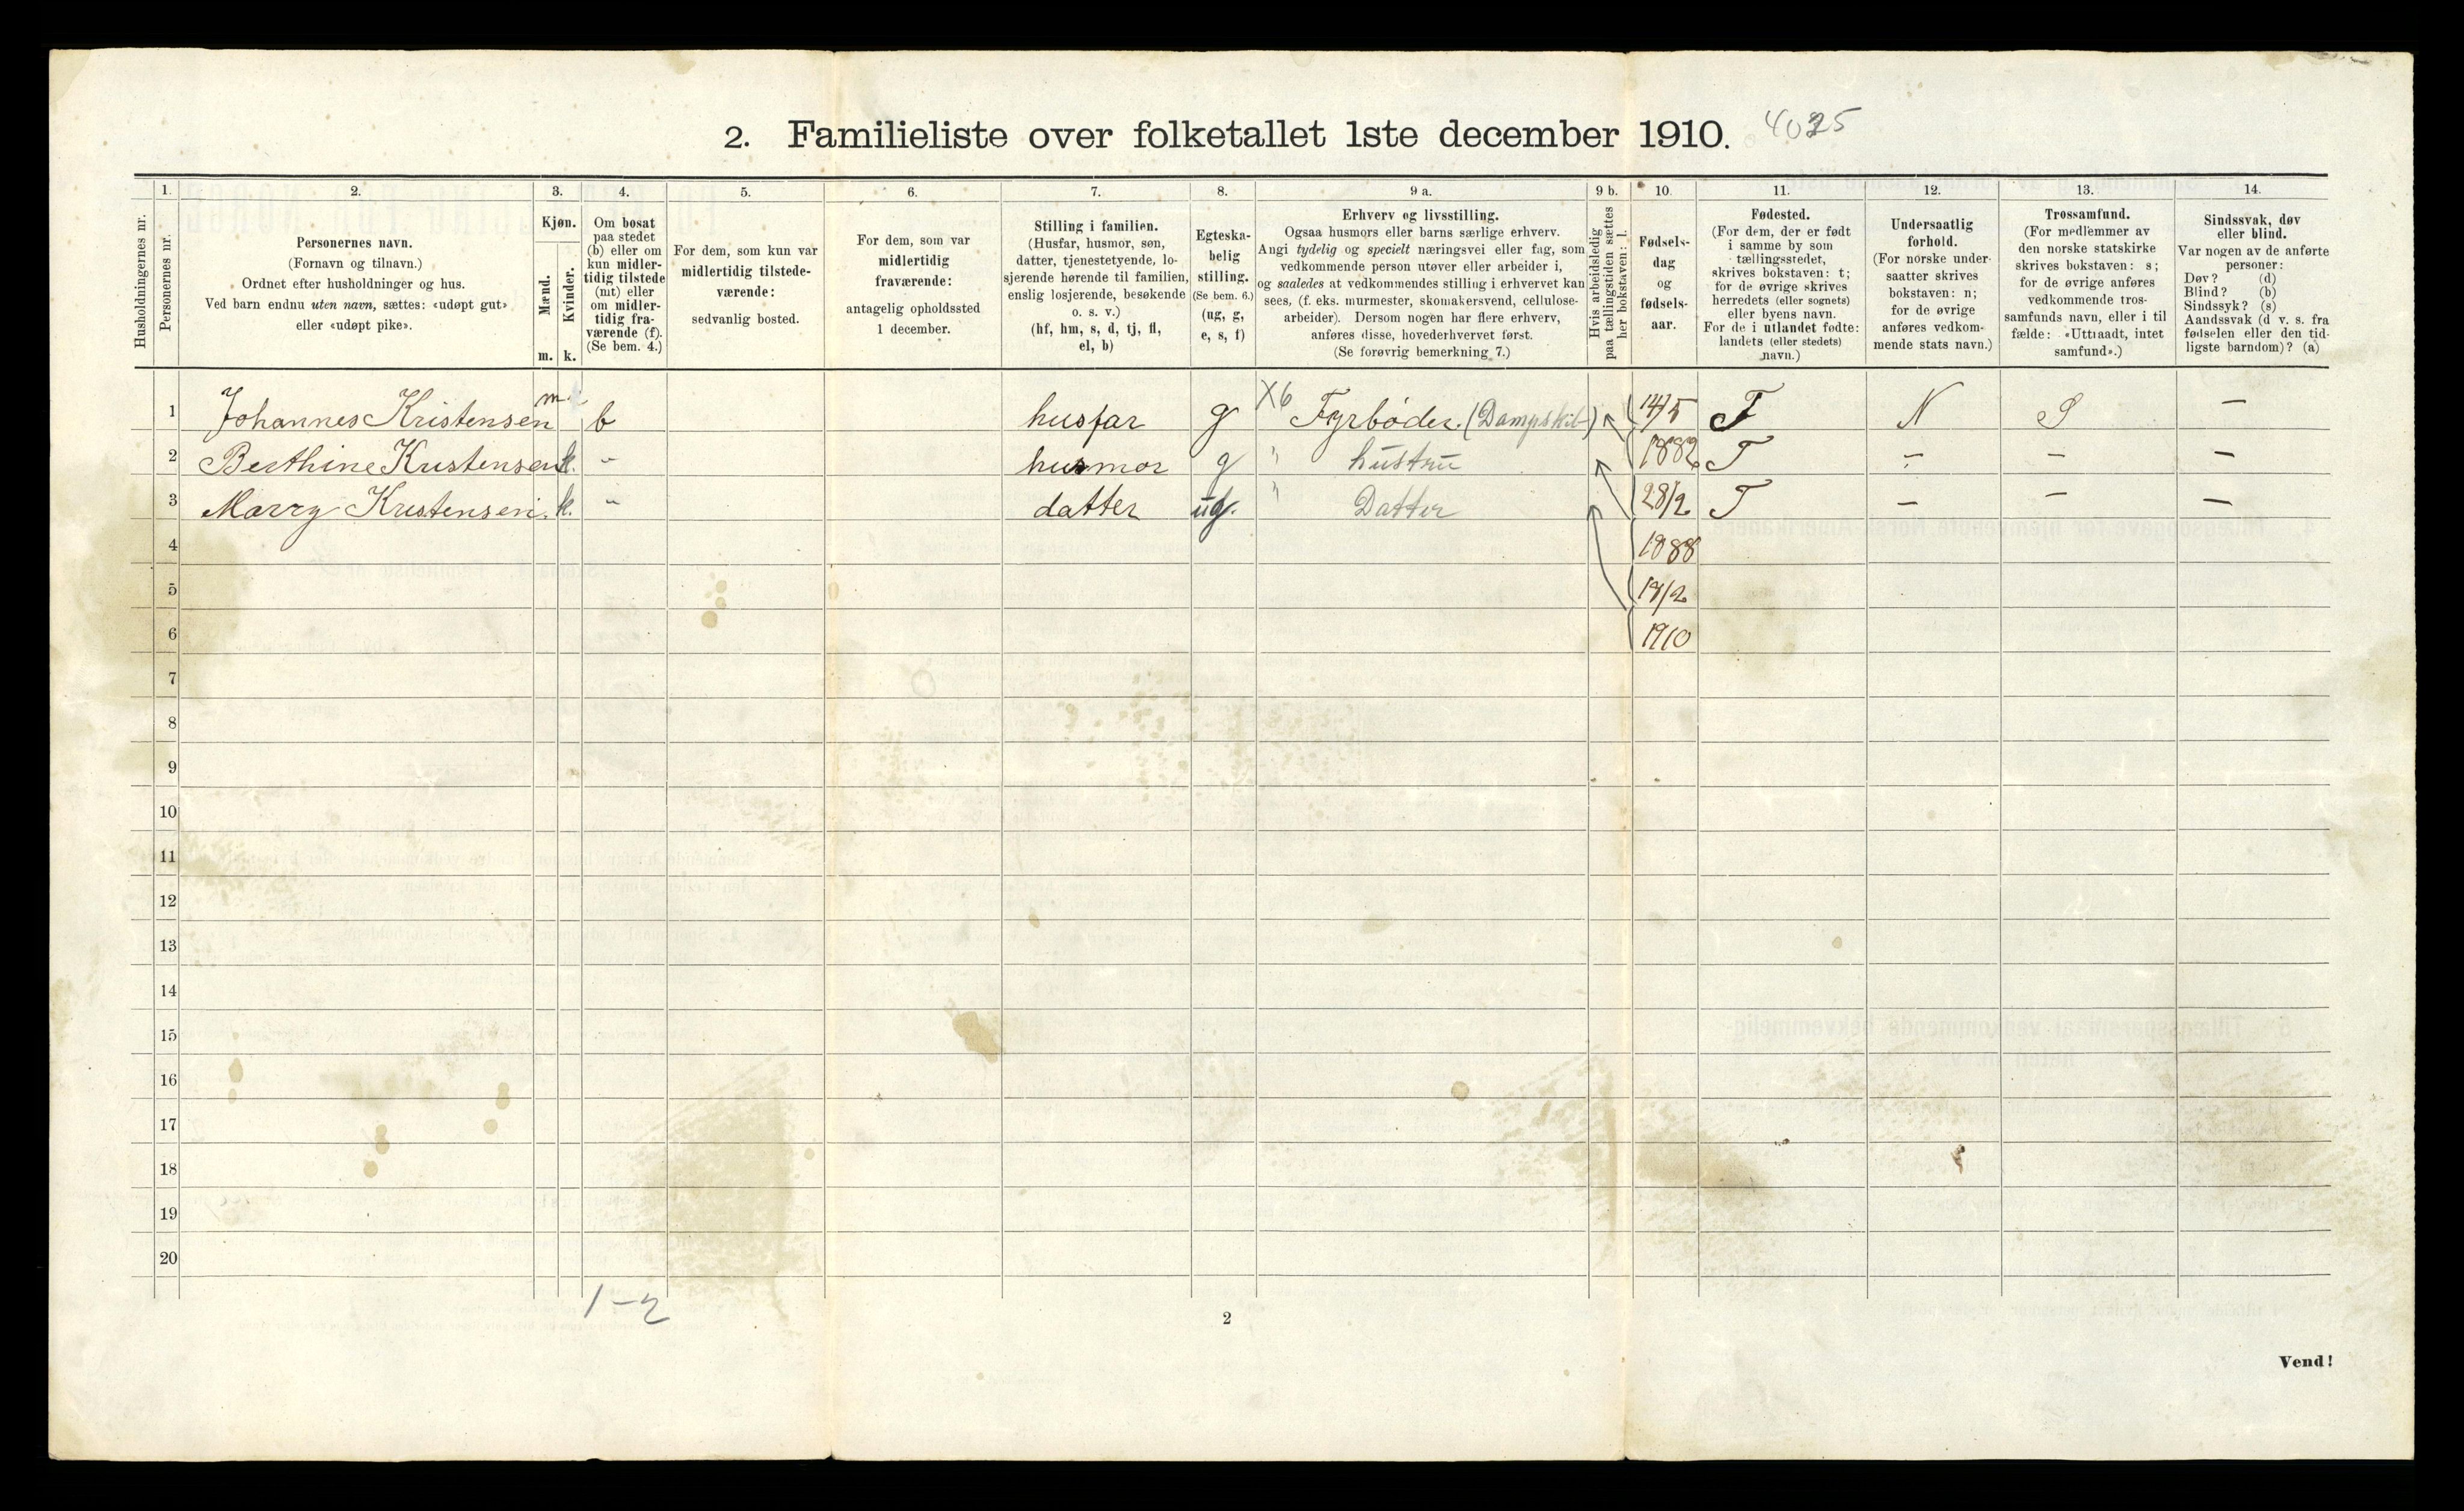 2. Familieliste over folketallet 1ste december 1910. 4025
Husholdningernes nr.
1.
Personernes nr.
2.
Personernes navn.
(Fornavn og tilnavn.)
Ordnet efter husholdninger og hus.
Ved barn endnu uten navn, sættes: «udøpt gut»
eller «udøpt pike».
3.
Kjøn.
Mænd.
Kvinder.
m. k.
4.
Om bosat
paa stedet
(b) eller om
kun midler-
tidig tilstede
(mt) eller
om midler-
tidig fra-
værende (f).
(Se bem. 4.)
5.
For dem, som kun var
midlertidig tilstede-
værende:
sedvanlig bosted.
6.
For dem, som var
midlertidig
fraværende:
antagelig opholdssted
1 december.
7.
Stilling i familien.
(Husfar, husmor, søn,
datter, tjenestetyende, lo-
sjerende hørende til familien,
enslig losjerende, besøkende
o. s. v.)
(hf, hm, s, d, tj, fl,
el, b)
8.
Egteska-
belig
stilling.
(Se bem. 6.)
(ug, g,
e, s, f)
9 a.
Erhverv og livsstilling.
Ogsaa husmors eller barns særlige erhverv.
Angi tydelig og specielt næringsvei eller fag, som
vedkommende person utøver eller arbeider i,
og saaledes at vedkommendes stilling i erhvervet kan
sees, (f. eks. murmester, skomakersvend, cellulose-
arbeider). Dersom nogen har flere erhverv,
anføres disse, hovederhvervet først.
(Se forøvrig bemerkning 7.)
9 b.
Hvis arbeidsledig
paa tællingstiden sættes
her bokstaven: l.
10.
Fødsels-
dag
og
fødsels-
aar.
11.
Fødested.
(For dem, der er født
i samme by som
tællingsstedet,
skrives bokstaven: t;
for de øvrige skrives
herredets (eller sognets)
eller byens navn.
For de i utlandet fødte:
landets (eller stedets)
navn.)
12.
Undersaatlig
forhold.
(For norske under-
saatter skrives
bokstaven: n;
for de øvrige
anføres vedkom-
mende stats navn.)
13.
Trossamfund.
(For medlemmer av
den norske statskirke
skrives bokstaven: s;
for de øvrige anføres
vedkommende tros-
samfunds navn, eller i til
fælde: «Uttraadt, intet
samfund».)
14.
Sindssvak, døv
eller blind.
Var nogen av de anførte
personer:
Døv? (d)
Blind? (b)
Sindssyk? (s)
Aandssvak (d v. s. fra
fødselen eller den tid-
ligste barndom)? (a)
1 Johannes Kristensen m. b husfar g X6 Fyrbøder. (Dampskib) (14/5 T N S —
2 Berthine Kristensen k. - husmor g " hustru (1882 T - - -
3 Marry Kristensen. k. - datter ug. " Datter (28/2 T - - -
4 1888
5 (19/2
6 1910
7
8
9
10
11
12
13
14
15
16
17
18
19
20
1-2
2
Vend!